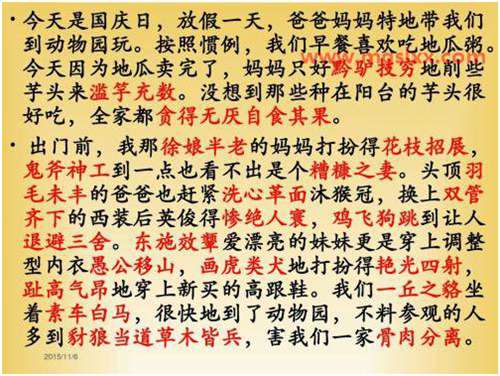 • 今天是国庆日，放假一天，爸爸妈妈特地带我们
到动物园玩。按照惯例，我们早餐喜欢吃地瓜粥。
今天因为地瓜卖完了，妈妈只好黔驴技穷地削些
芋头来滥竽充数。没想到那些种在阳台的芋头很
好吃，全家都贪得无厌自食其果。
• 出门前，我那徐娘半老的妈妈打扮得花枝招展，
鬼斧神工到一点也看不出是个糟糠之妻。头顶羽
毛未丰的爸爸也赶紧洗心革面沐猴冠，换上双管
齐下的西装后英俊得惨绝人寰，鸡飞狗跳到让人
退避三舍。东施效颦爱漂亮的妹妹更是穿上调整
型内衣愚公移山，画虎类犬地打扮得艳光四射，
趾高气昂地穿上新买的高跟鞋。我们一丘之貉坐
着素车白马，很快地到了动物园，不料参观的人
多到豺狼当道草木皆兵，害我们一家骨肉分离。
2015/11/6